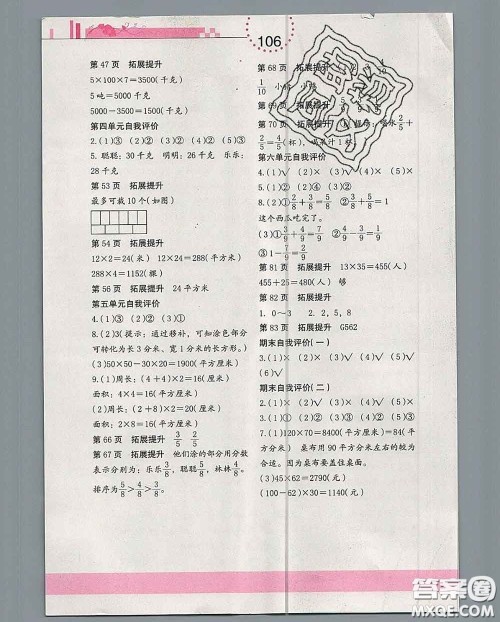 106
第47页 拓展提升
5×100×7=3500(千克)
5吨=5000千克
5000-3500=1500(千克)
第四单元自我评价
2.(1)③ (2)② (3)② (4)②
5. 聪聪：30千克 明明：26千克 乐乐：
28千克
第53页 拓展提升
最多可裁10个(如图)
第54页 拓展提升
12×2=24(米) 12×24=288(平方米)
288×4=1152(棵)
第56页 拓展提升 24平方米
第五单元自我评价
4.(1)③ (2)② (3)①
8.(2)3(提示：通过移补，可知涂色部分
可转化为长3分米、宽1分米的长方形。)
(3)50×50-30×20=1900(平方米)
9.(1)周长：(4+4)×2=16(厘米)
面积：4×4=16(平方厘米)
(2)周长：(2+8)×2=20(厘米)
面积：8×2=16(平方厘米)
第66页 拓展提升 3/5 2/5
第67页 拓展提升 他们涂的部分用分数
表示分别为：乐乐3/8，聪聪5/8，林林4/8。
排序为5/8>4/8>3/8。
第68页 拓展提升
1/10 小
第69页 拓展提升
第70页 拓展提升
2/5=4/5(杯)，
第六单元自我评价
4.(1)√ (2)× (3)× (4)× (5)×
5.(1)② (2)④ (3)②
8.(1)①2/8+3/8=5/8 ②3/8+5/8=1
这个西瓜吃完了。
(3)①2/9+4/9=6/9 ②3/9+4/9=7/9
③1-7/9=2/9
第81页 拓展提升 13×35=455(人)
455+25=480(人) 够
第82页 拓展提升
1. 0～3 2. 2,5,8
第83页 拓展提升 G562
期末自我评价(一)
2.(1)× (2)× (3)√ (4)√ (5)√
(6)√
期末自我评价(二)
2.(1)× (2)× (3)√ (4)× (5)×
3.(1)① (2)② (3)② (4)③ (5)①
8.(1)120×70=8400(平方厘米)=84(平
方分米) 桌布用90平方分米左右的较为
合适。因为桌布要盖住桌面。
(3)45×62=2790(元)
(100-62)×30=1140(元)
答案圈
MXQE.COM